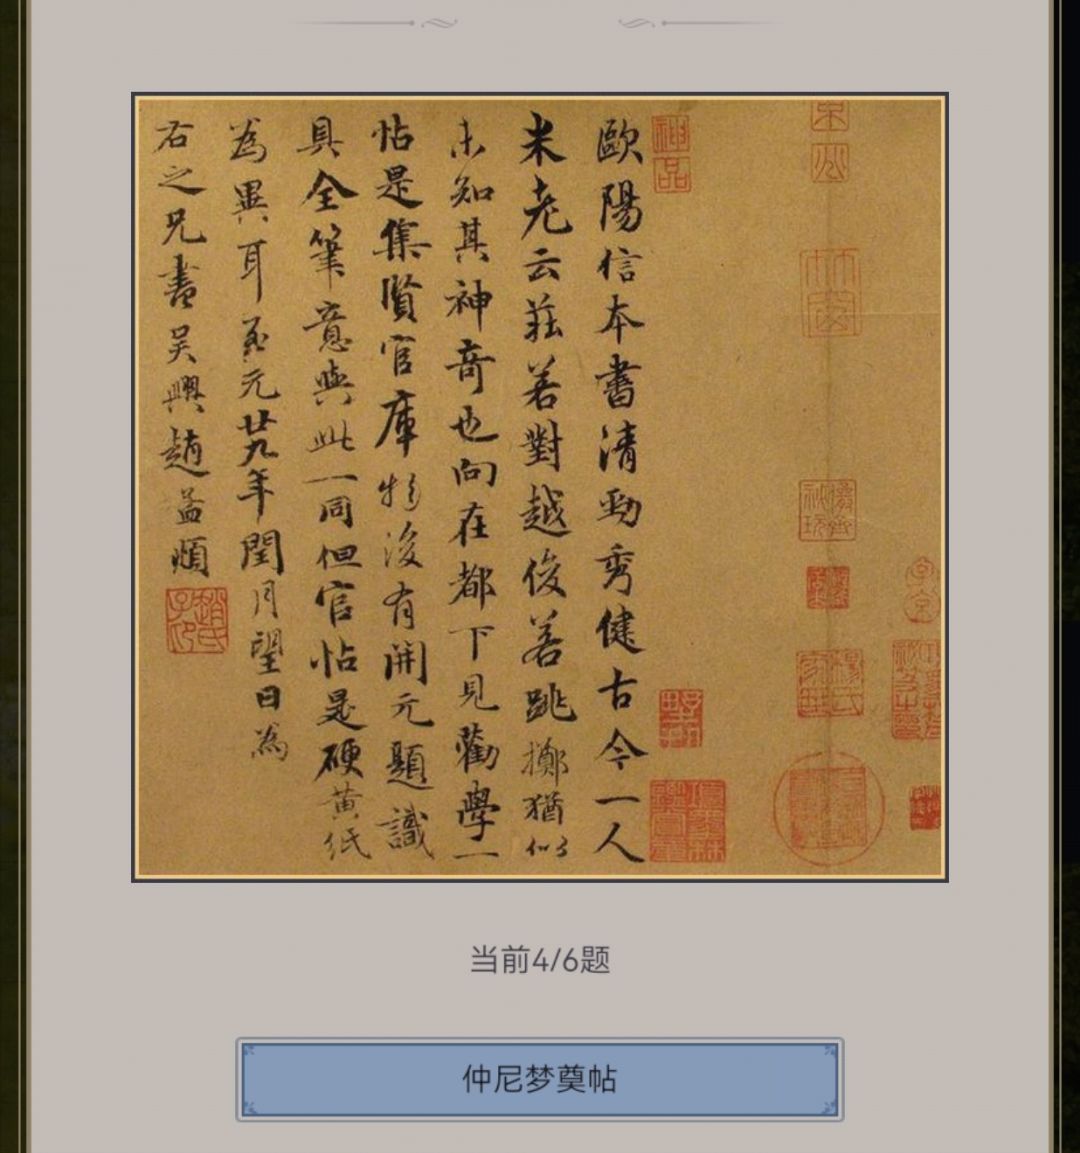 神品
歐陽信本書清勁秀健古今一人
米老云莊若對越俊若跳擲猶似
未知其神奇也向在都下見勸學一
帖是集賢官庫物後有開元題識
具全筆意與此一同但官帖是硬黄紙
為異耳至元廿九年閏月望日為
右之兄書吴興趙孟頫
趙氏子印
当前4/6题
仲尼梦奠帖